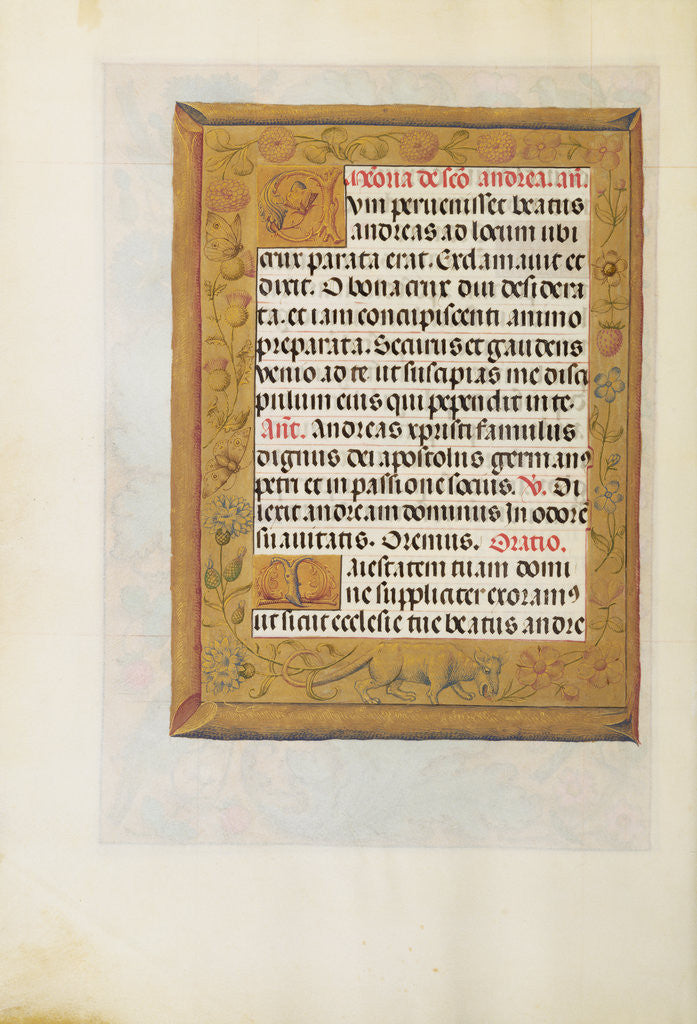 Memoria de sco andrea. an.
Cum peruenisset beatus
andreas ad locum ubi
crux parata erat. Exclamauit et
dixit. O bona crux diu desidera
ta. et iam concupiscenti animo
preparata. Securus et gaudens
uenio ad te ut suscipias me disci
pulum eius qui pependit in te.
Ant. Andreas xpristi famulus
dignus dei apostolus germanꝰ
petri et in passione socius. ℣. Di
lexit andream dominus In odore
suauitatis. Oremus. Oratio.
Maiestatem tuam domi
ne suppliciter exoramꝰ
ut sicut ecclesie tue beatus andre